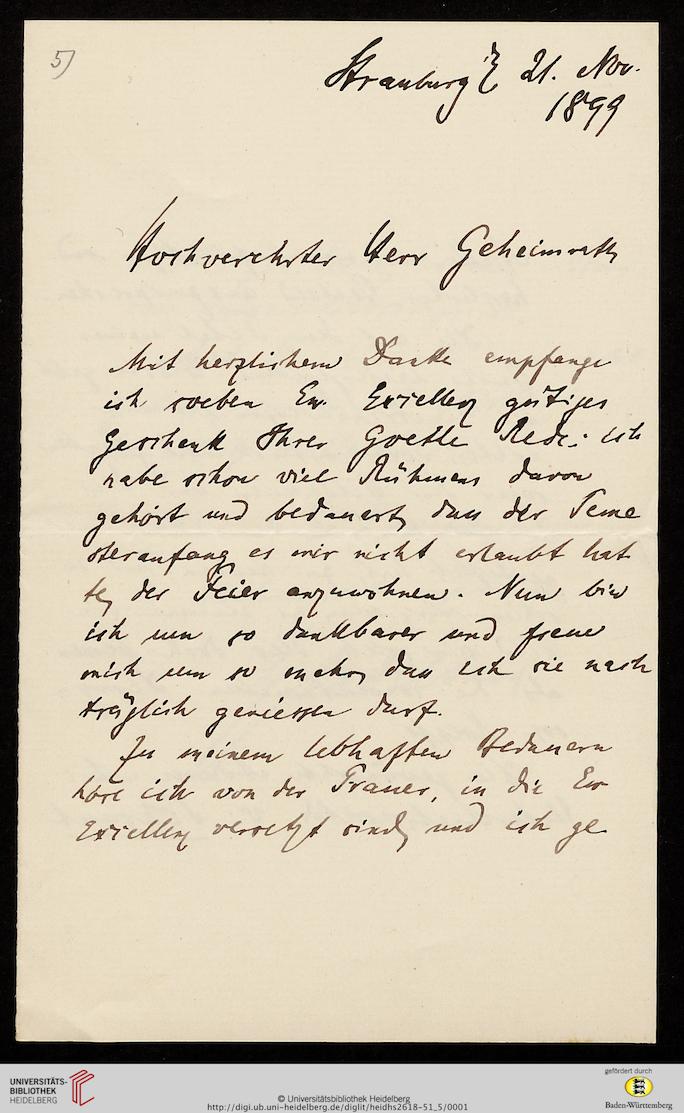 5)
Strassburg i/E 21. Nov.
1899
Hochverehrter Herr Geheimrath
Mit herzlichem Danke empfange
ich soeben Ew. Excellenz gütiges
Geschenk Ihrer Goethe Rede; ich
habe schon viel Rühmens davon
gehört und bedauert, dass der Seme
steranfang es mir nicht erlaubt hat
te, der Feier anzuwohnen. Nun bin
ich um so dankbarer und freue
mich um so mehr, dass ich sie nach
träglich geniessen darf.
Zu meinem lebhaften Bedauern
höre ich von der Trauer, in die Ew
Excellenz versetzt sind, und ich ge
UNIVERSITÄTS-
BIBLIOTHEK
HEIDELBERG
© Universitätsbibliothek Heidelberg
http://digi.ub.uni-heidelberg.de/diglit/heidhs2618-51_5/0001
gefördert durch
Baden-Württemberg